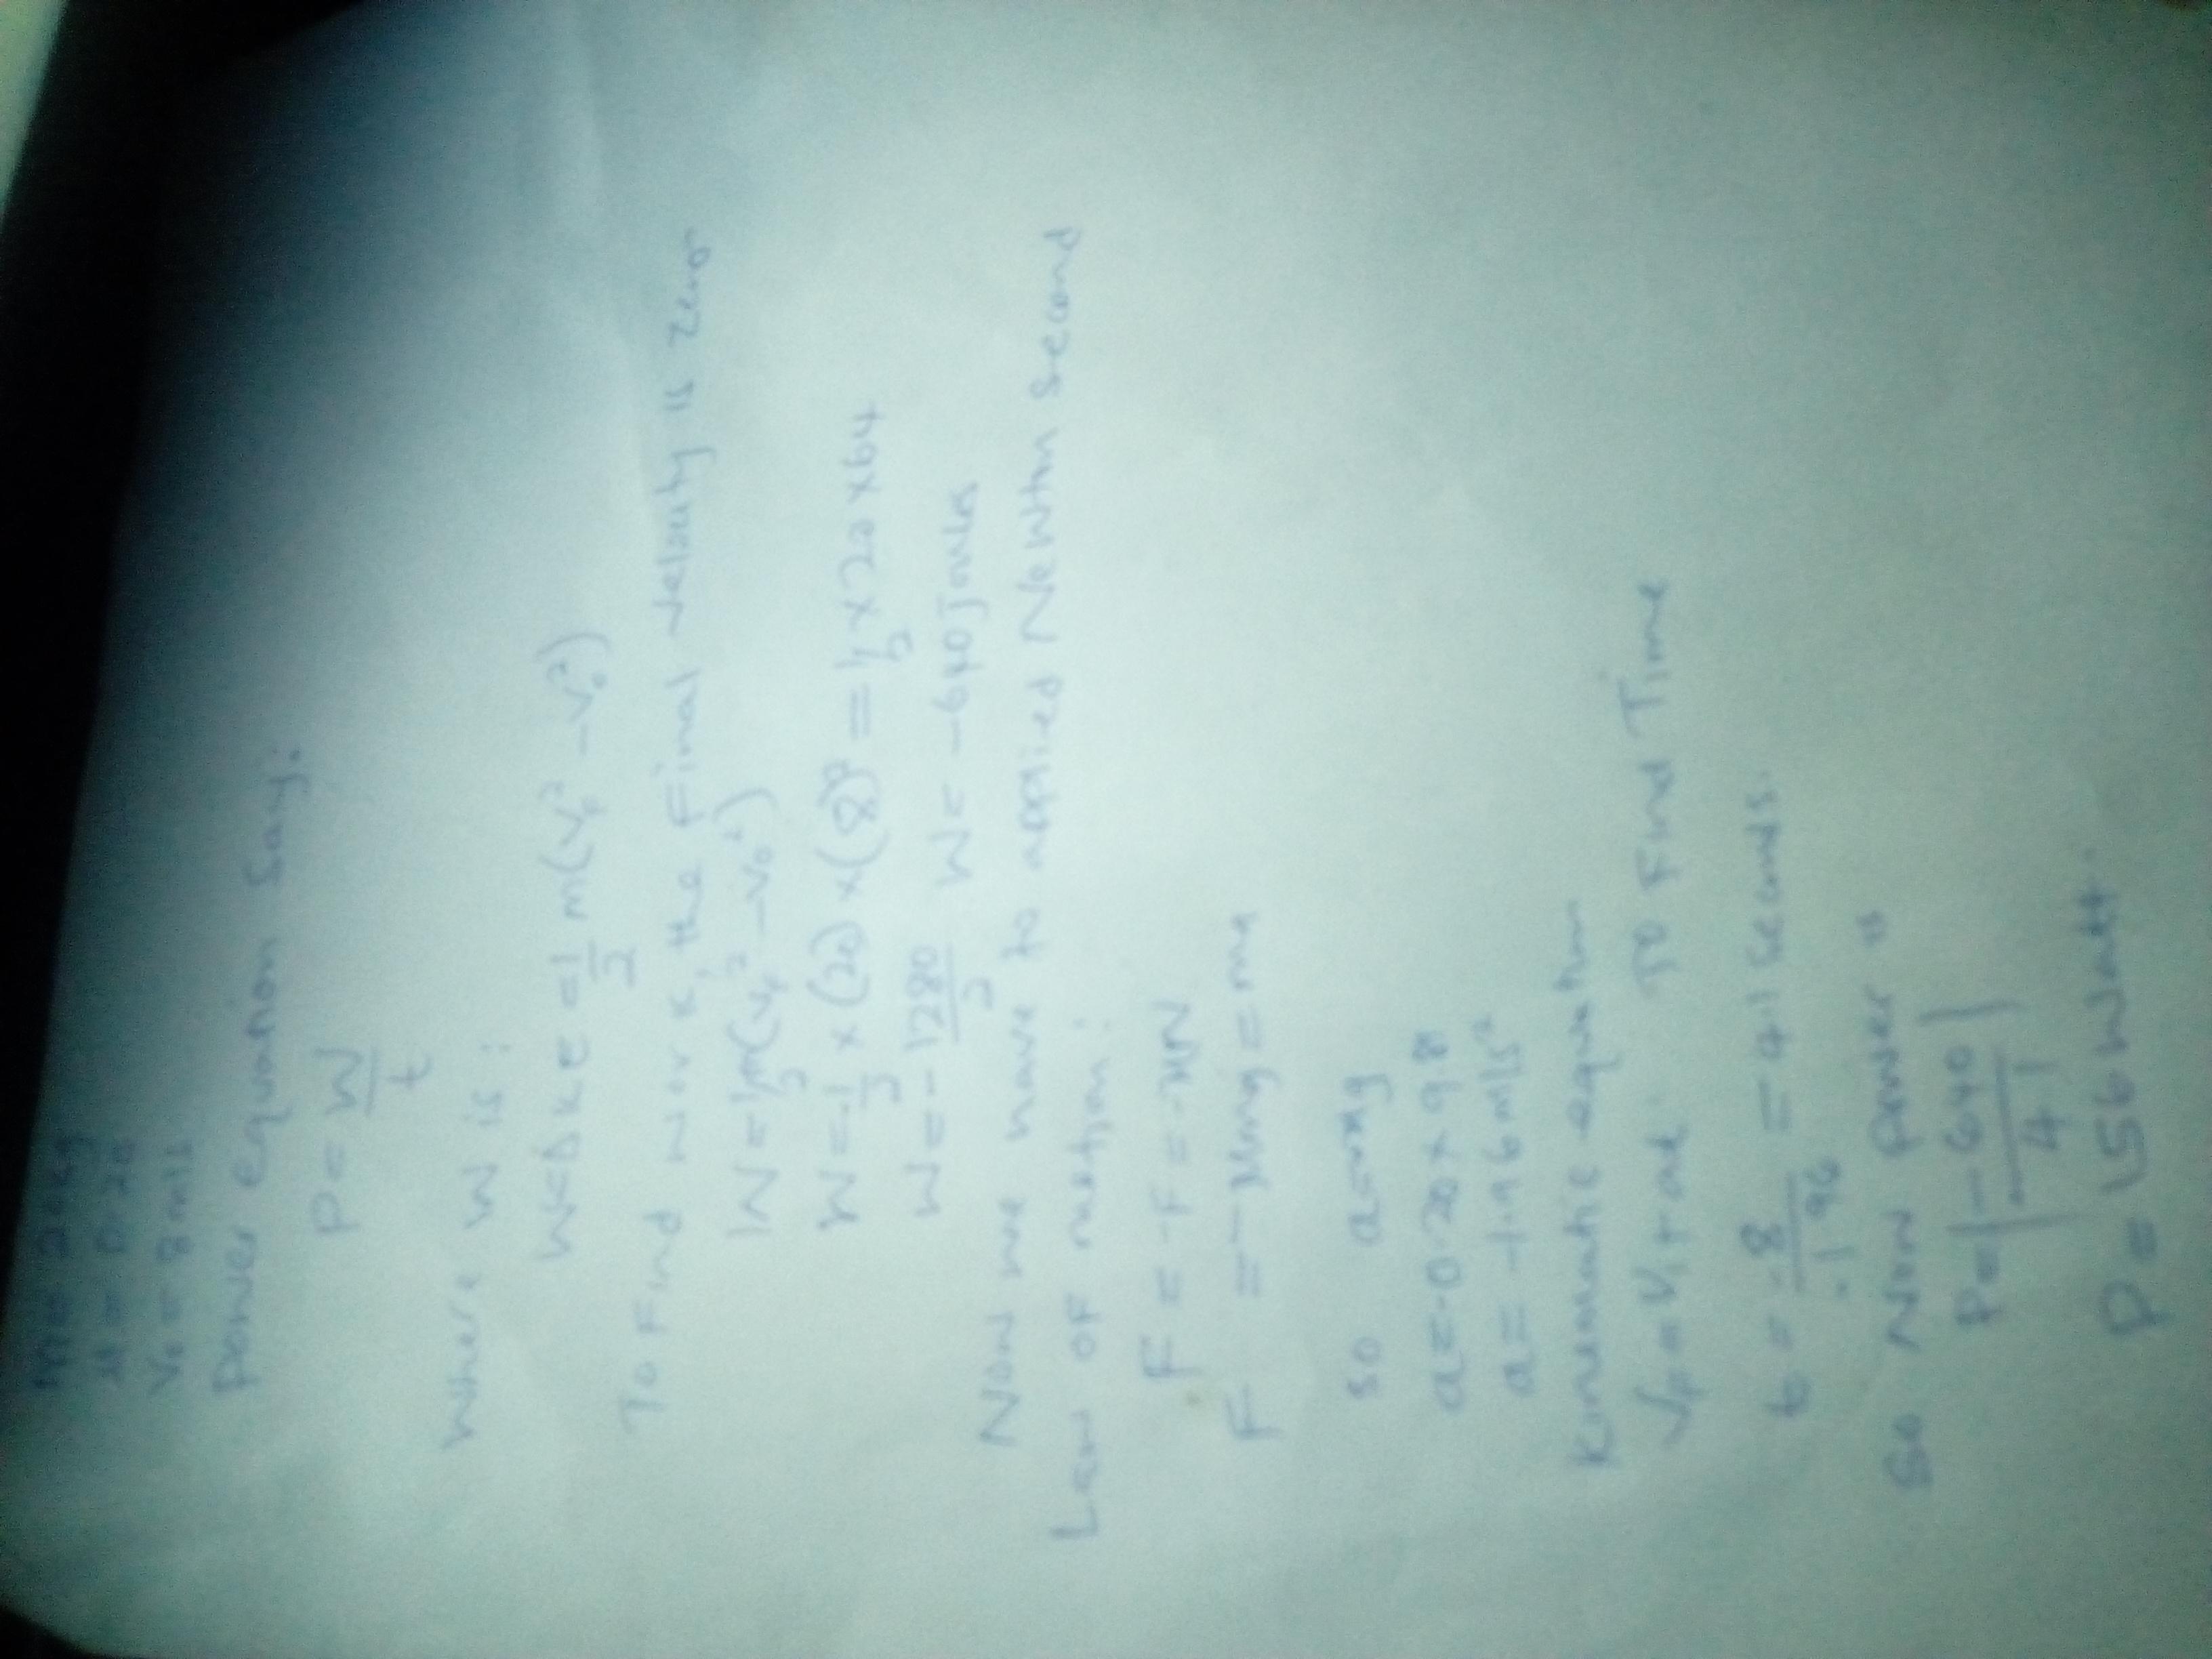 m = 20kg
μ = 0.20
V₀ = 8m/s
Power equation say:
P = W/t
Where W is:
W = ΔKE = 1/2 m(V_f² - V₀²)
To Find work, the Final velocity is zero
W = 1/2 m(V_f² - V₀²)
W = -1/2 × (20) × (8)² = 1/2 × 20 × 64
W = -1280/2 W = -640 Joules
Now we have to applied Newton second
Law of motion:
F = -F = -μN
F = -μmg = ma
so a = -μg
a = -0.20 × 9.8
a = -1.96 m/s²
Kinematic equation
V_f = V_i + at To Find Time
t = -8/-1.96 = 4.1 seconds.
So Now Power is
P = |-640/4.1|
P = 156 Watt.